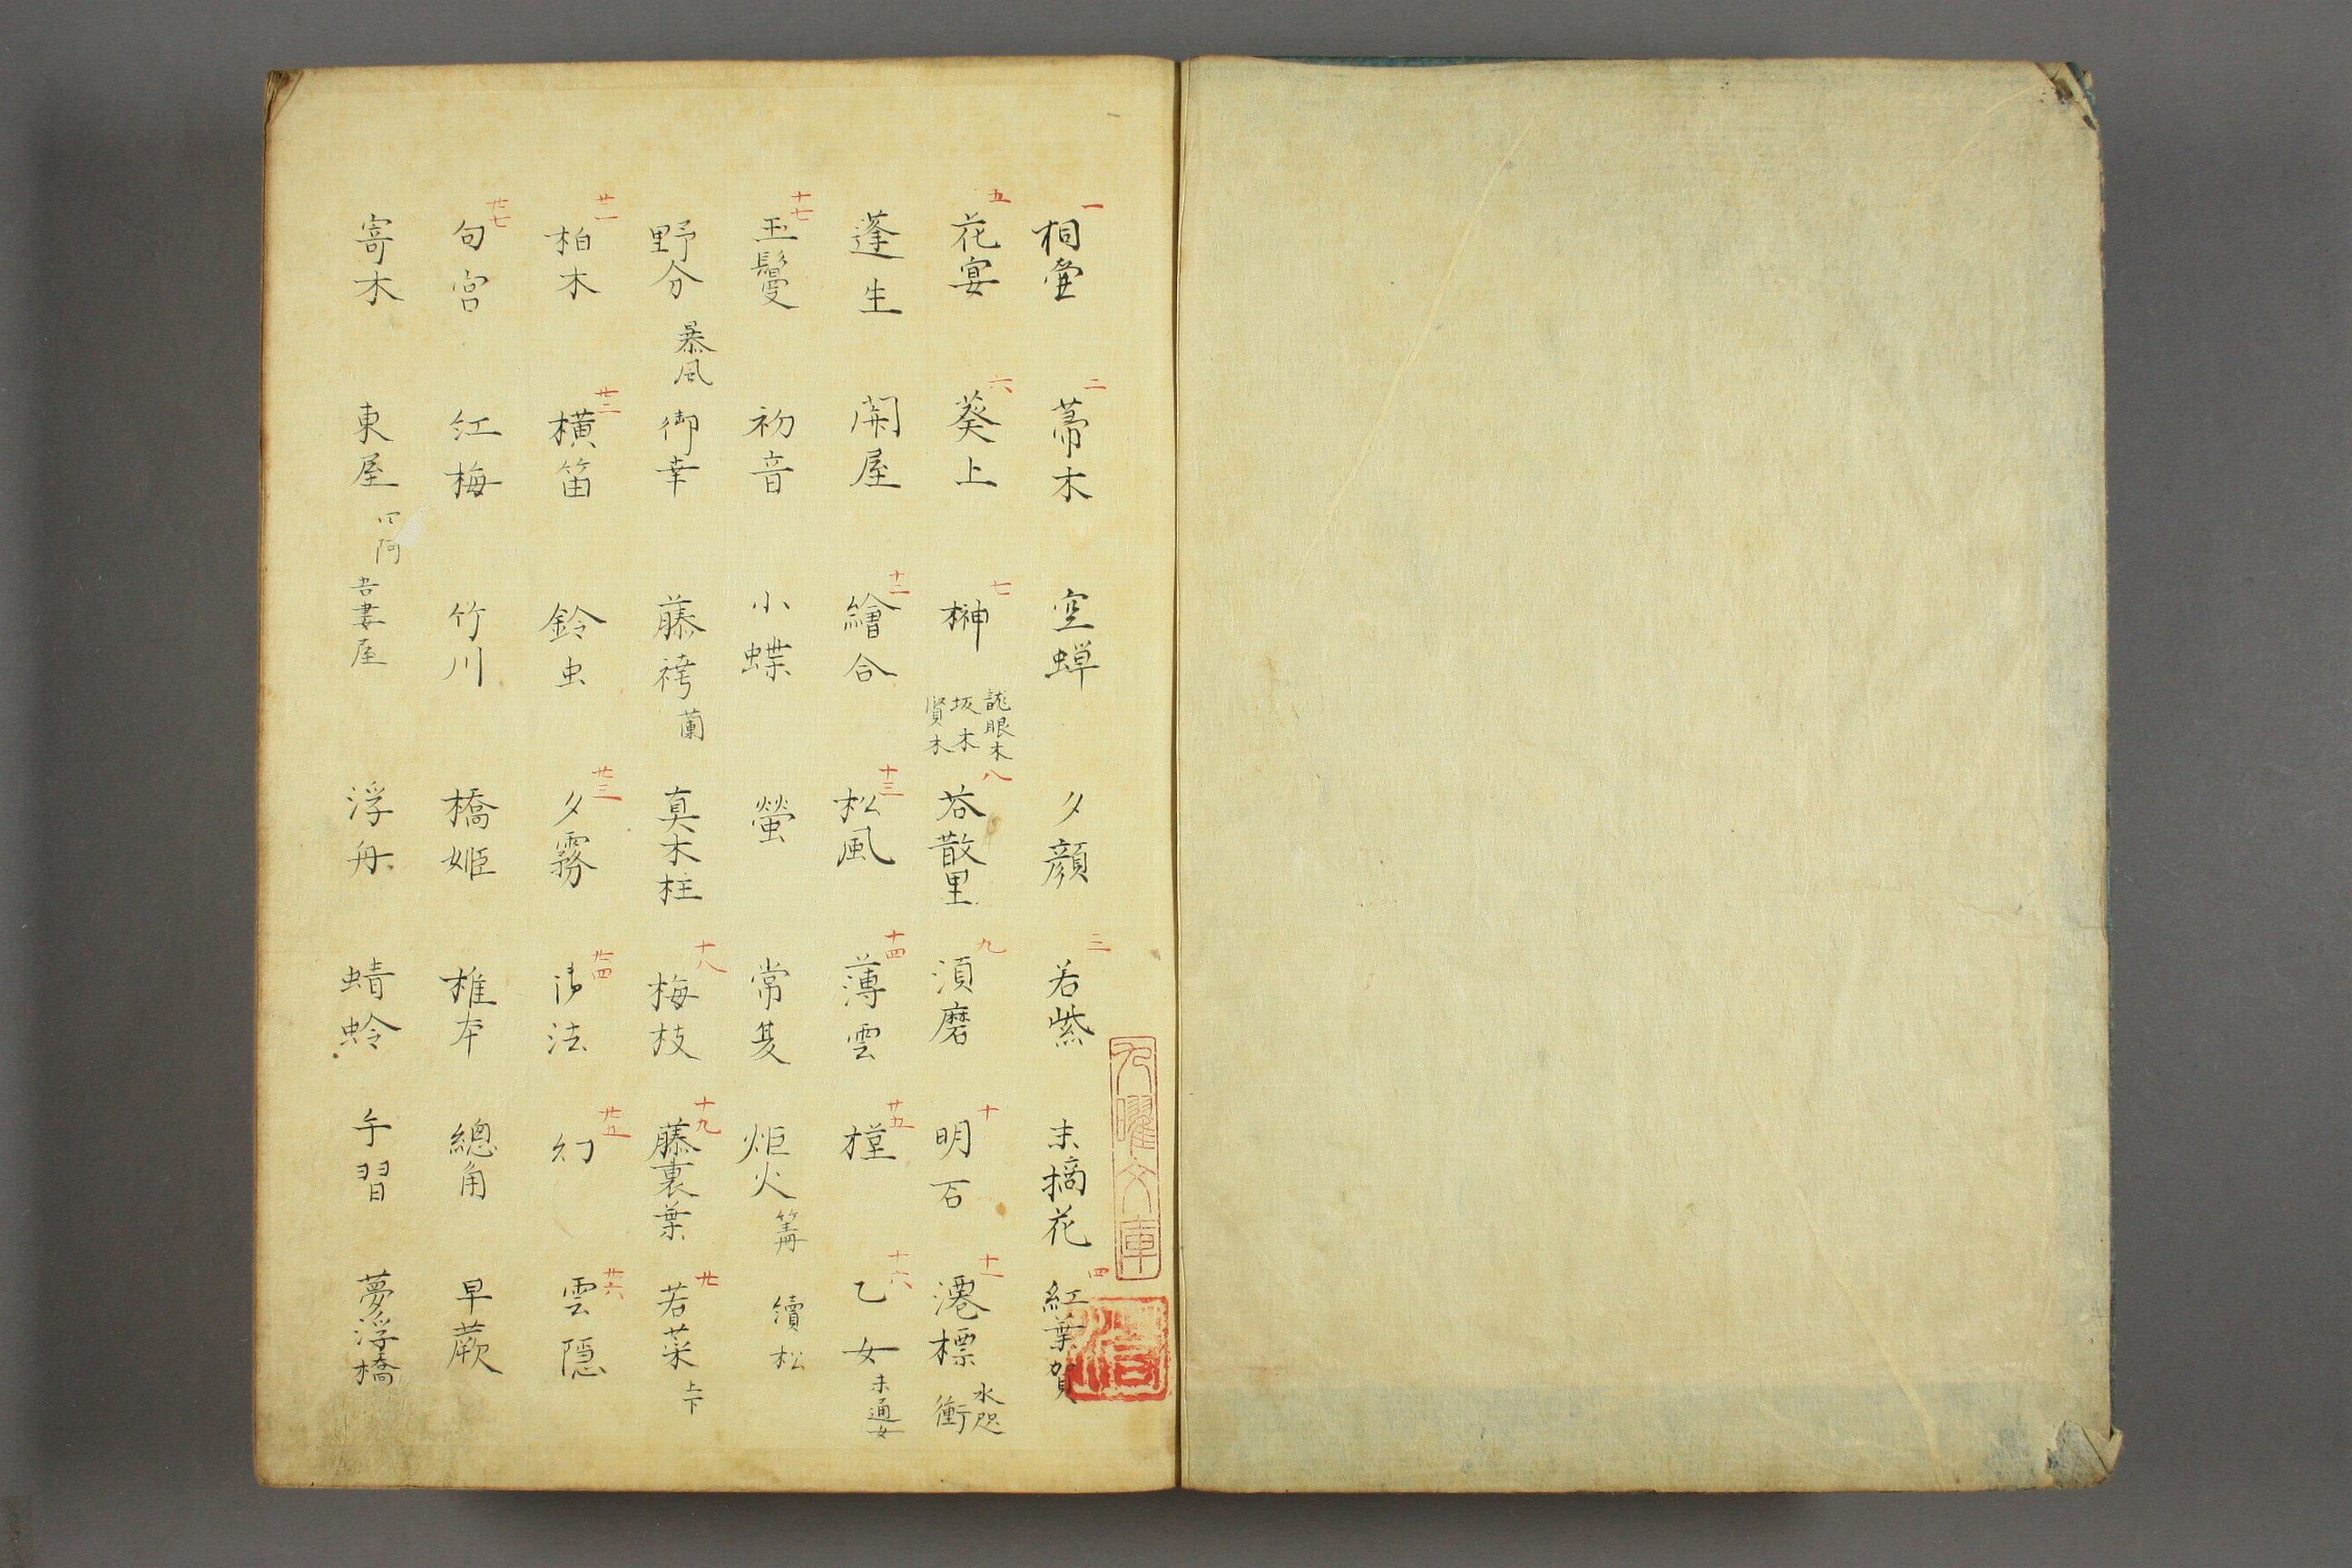 一桐壷 二菷木 空蝉 夕顔 三若紫 末摘花 四紅葉賀
五花宴 六葵上 七榊 龍眼木 坂木 賢木 八花散里 九須磨 十明石 十一澪標 水咫 衝
蓬生 関屋 十二繪合 十三松風 十四薄雲 廿五槿 十六乙女 未通女
十七玉鬘 初音 小蝶 螢 常夏 炬火 篝 續松
野分 暴風 御幸 藤袴 蘭 真木柱 十八梅枝 十九藤裏葉 廿若菜 上下
廿一柏木 廿二横笛 鈴虫 廿三夕霧 廿四御法 廿五幻 廿六雲隠
廿七匂宮 紅梅 竹川 橋姫 椎本 總角 早蕨
寄木 東屋 四阿 吾妻屋 浮舟 蜻蛉 手習 夢浮橋
九曜文庫